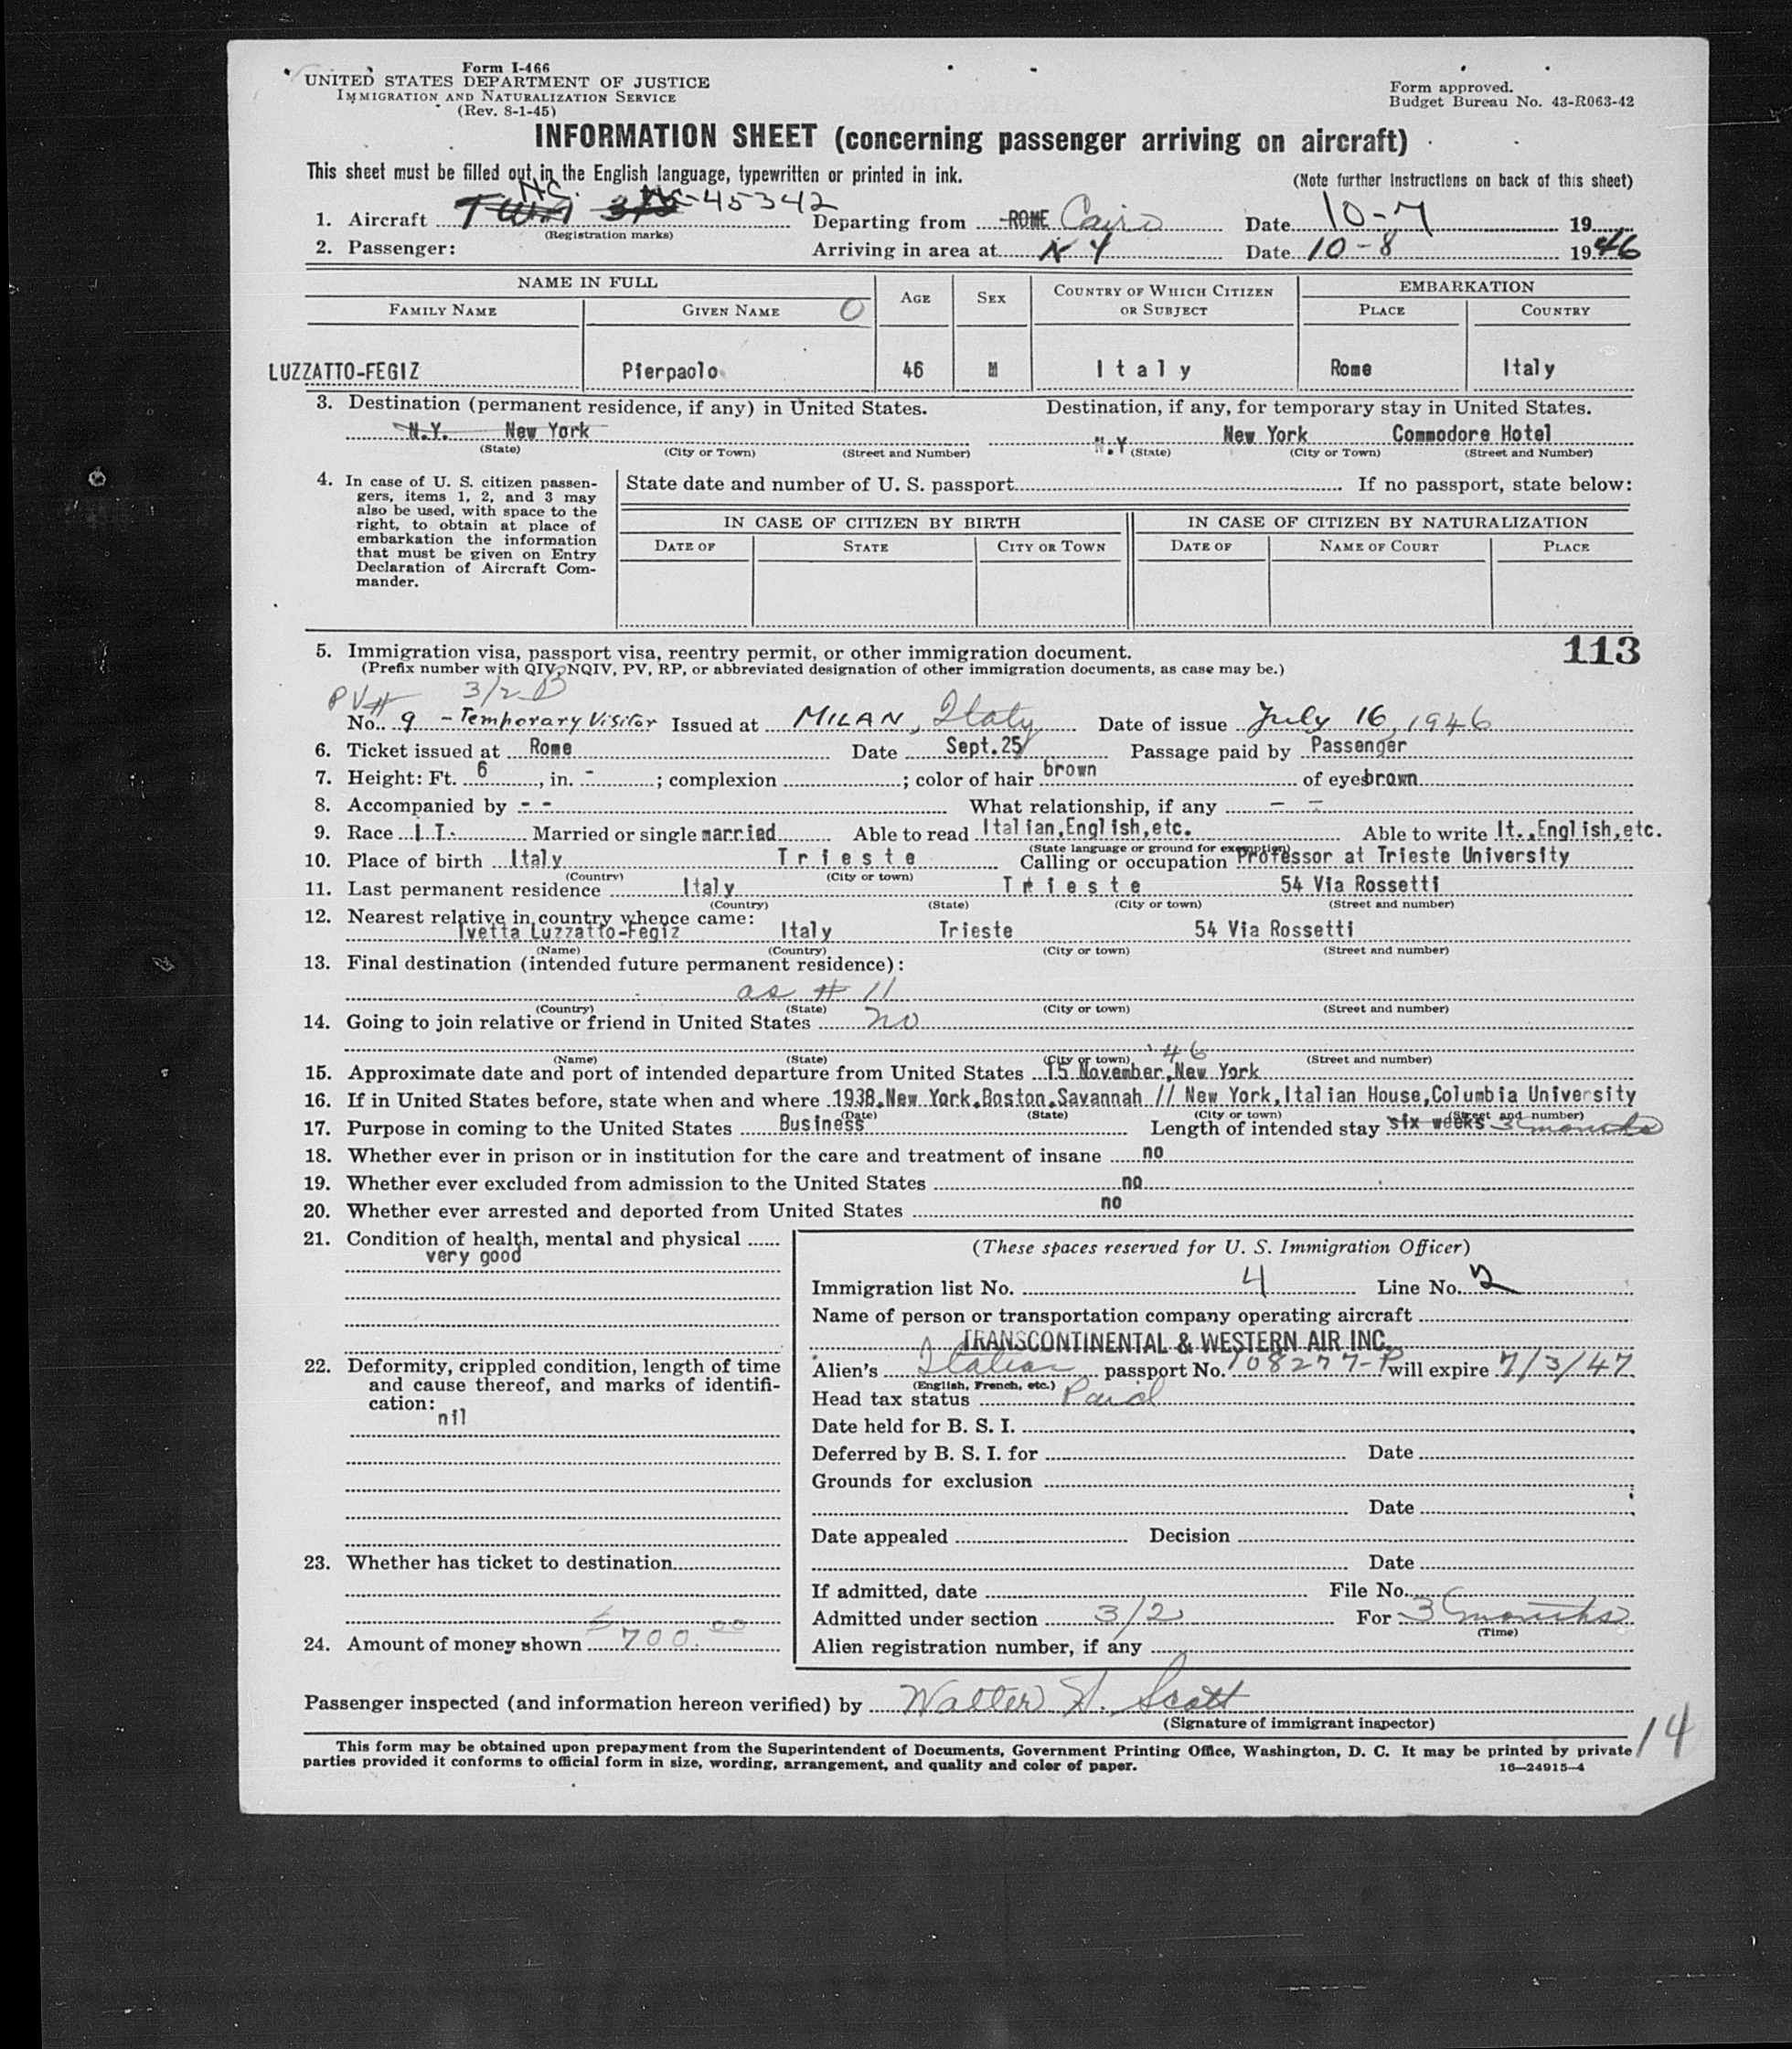 Form I-466
UNITED STATES DEPARTMENT OF JUSTICE
IMMIGRATION AND NATURALIZATION SERVICE
(Rev. 8-1-45)
Form approved.
Budget Bureau No. 43-R063-42
INFORMATION SHEET (concerning passenger arriving on aircraft)
This sheet must be filled out in the English language, typewritten or printed in ink.
(Note further instructions on back of this sheet)
1. Aircraft TWA NC-45342 Departing from ROME Cairo Date 10-7 19
(Registration marks)
2. Passenger: Arriving in area at N Y Date 10-8 1946
NAME IN FULL
FAMILY NAME GIVEN NAME O AGE SEX COUNTRY OF WHICH CITIZEN OR SUBJECT EMBARKATION PLACE COUNTRY
LUZZATTO-FEGIZ Pierpaolo 46 M Italy Rome Italy
3. Destination (permanent residence, if any) in United States. Destination, if any, for temporary stay in United States.
N.Y. New York N.Y New York Commodore Hotel
(State) (City or Town) (Street and Number) (State) (City or Town) (Street and Number)
4. In case of U. S. citizen passen-
gers, items 1, 2, and 3 may
also be used, with space to the
right, to obtain at place of
embarkation the information
that must be given on Entry
Declaration of Aircraft Com-
mander.
State date and number of U. S. passport If no passport, state below:
IN CASE OF CITIZEN BY BIRTH IN CASE OF CITIZEN BY NATURALIZATION
DATE OF STATE CITY OR TOWN DATE OF NAME OF COURT PLACE
113
5. Immigration visa, passport visa, reentry permit, or other immigration document.
(Prefix number with QIV, NQIV, PV, RP, or abbreviated designation of other immigration documents, as case may be.)
PV# 3/2 B
No. 9 - Temporary Visitor Issued at MILAN, Italy Date of issue July 16, 1946
6. Ticket issued at Rome Date Sept.25 Passage paid by Passenger
7. Height: Ft. 6, in. -; complexion ; color of hair brown of eyes brown
8. Accompanied by - - What relationship, if any - -
9. Race IT. Married or single married Able to read Italian,English,etc. Able to write It.,English,etc.
(State language or ground for exemption)
10. Place of birth Italy Trieste Calling or occupation Professor at Trieste University
(Country) (City or town)
11. Last permanent residence Italy Trieste 54 Via Rossetti
(Country) (State) (City or town) (Street and number)
12. Nearest relative in country whence came:
Ivetta Luzzatto-Fegiz Italy Trieste 54 Via Rossetti
(Name) (Country) (City or town) (Street and number)
13. Final destination (intended future permanent residence):
as # 11
(Country) (State) (City or town) (Street and number)
14. Going to join relative or friend in United States no
(Name) (State) (City or town) (Street and number)
15. Approximate date and port of intended departure from United States 15 November, '46 New York
16. If in United States before, state when and where 1938,New York,Boston,Savannah // New York,Italian House,Columbia University
(Date) (State) (City or town) (Street and number)
17. Purpose in coming to the United States Business Length of intended stay six weeks 3 months
18. Whether ever in prison or in institution for the care and treatment of insane no
19. Whether ever excluded from admission to the United States no
20. Whether ever arrested and deported from United States no
21. Condition of health, mental and physical
very good
22. Deformity, crippled condition, length of time
and cause thereof, and marks of identifi-
cation:
nil
23. Whether has ticket to destination
24. Amount of money shown $700.00
(These spaces reserved for U. S. Immigration Officer)
Immigration list No. 4 Line No. 2
Name of person or transportation company operating aircraft
TRANSCONTINENTAL & WESTERN AIR INC.
Alien's Italian passport No. 108277-P will expire 7/3/47
(English, French, etc.)
Head tax status Paid
Date held for B. S. I.
Deferred by B. S. I. for Date
Grounds for exclusion
Date
Date appealed Decision
Date
If admitted, date File No.
Admitted under section 3/2 For 3 months
(Time)
Alien registration number, if any
Passenger inspected (and information hereon verified) by Walter A. Scott
(Signature of immigrant inspector)
14
This form may be obtained upon prepayment from the Superintendent of Documents, Government Printing Office, Washington, D. C. It may be printed by private
parties provided it conforms to official form in size, wording, arrangement, and quality and color of paper.
16—24915-4